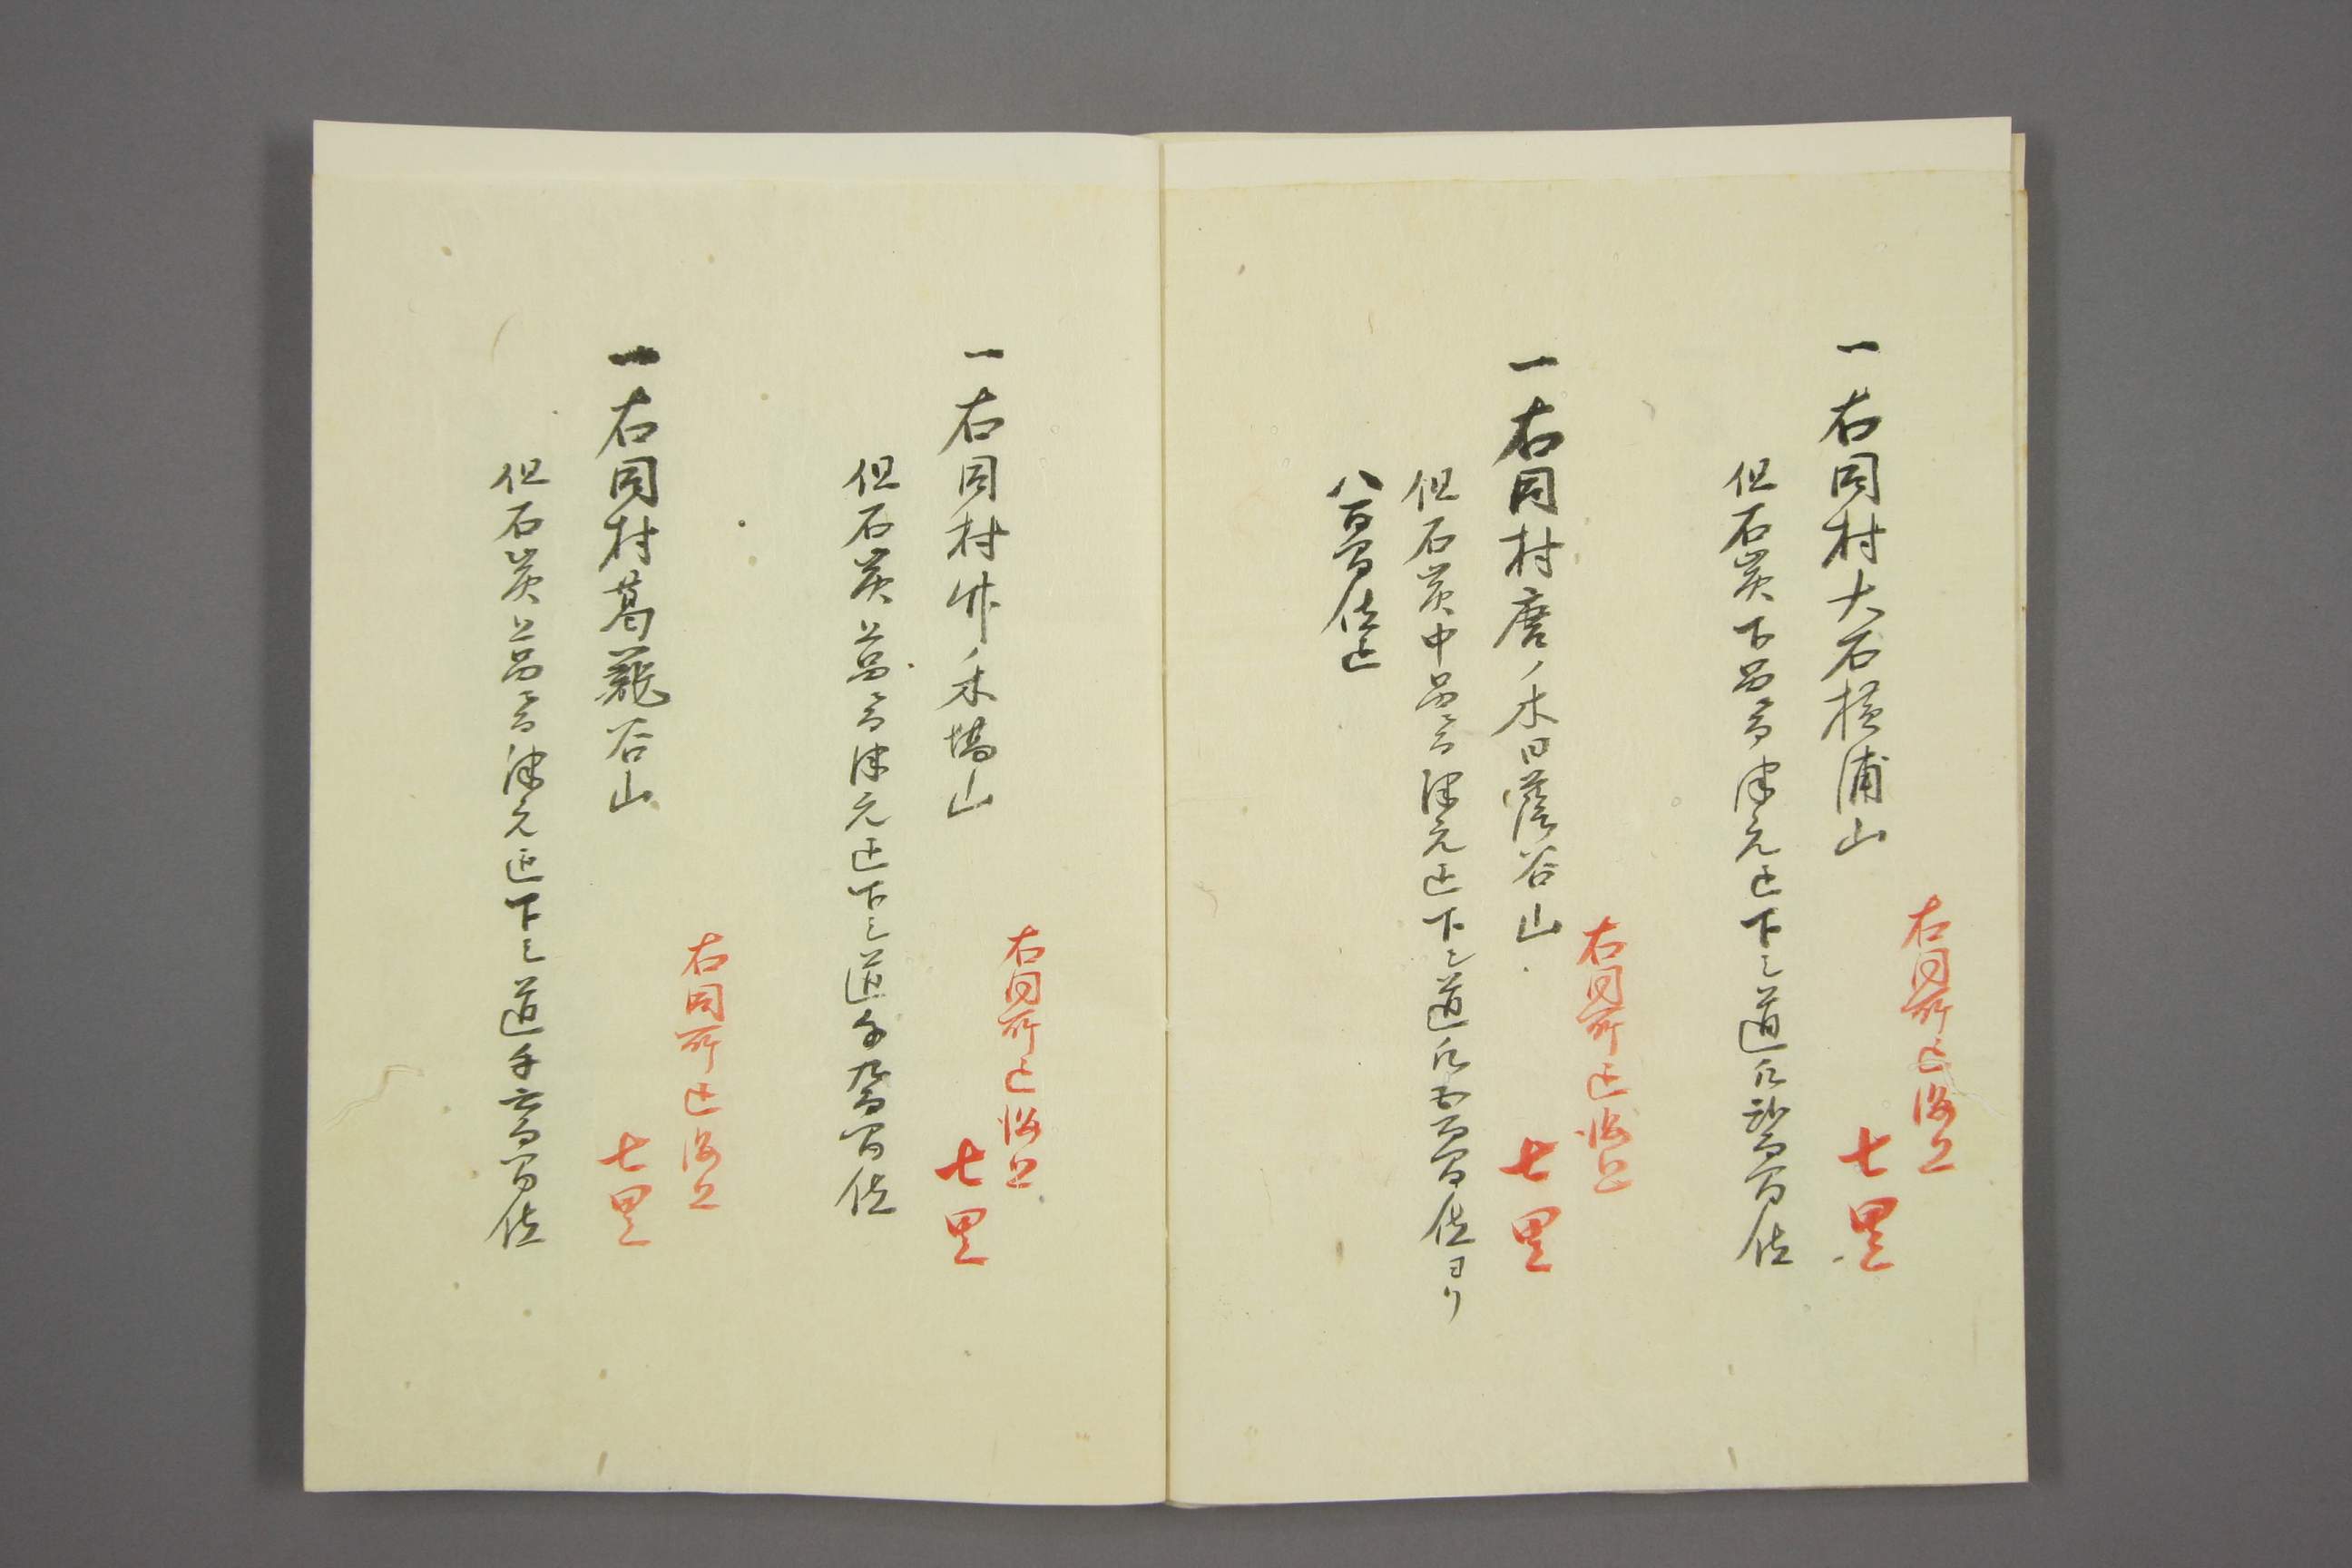 一右同村大石横浦山
右同所迄海上
七里
但石炭下品ニ而津元迄下シ道凡弐百間位
一右同村唐ノ木日蔭谷山
右同所迄海上
七里
但石炭中品ニ而津元迄下シ道凡五百間位ヨリ
八百間位迄
一右同村竹ノ木場山
右同所迄海上
七里
但石炭上品ニ而津元迄下シ道千九百間位
一右同村葛籠谷山
右同所迄海上
七里
但石炭上品ニ而津元迄下シ道千六百間位